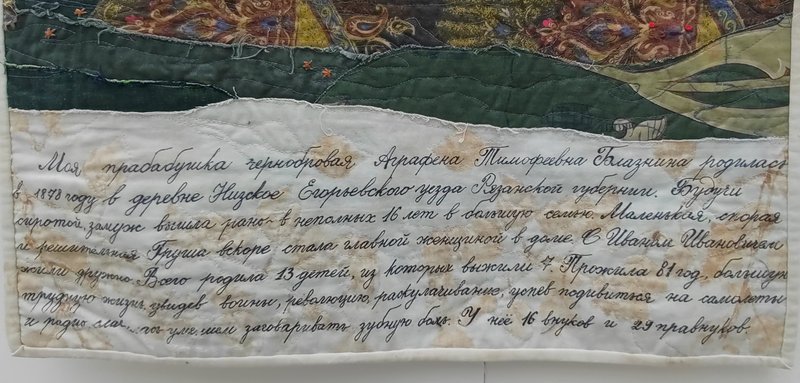 Моя прабабушка чернобровая Аграфена Тимофеевна Блазнина родилась
в 1878 году в деревне Низское Егорьевского уезда Рязанской губернии. Будучи
сиротой, замуж вышла рано - в неполных 16 лет в большую семью. Маленькая, скорая
и решительная Груша вскоре стала главной женщиной в доме. С Иваном Ивановичем
жили дружно. Всего родила 13 детей, из которых выжили 7. Прожила 81 год, большую
трудную жизнь, увидев войны, революцию, раскулачивание, успев подивиться на самолеты
и радио, заговаривать зубную боль. У неё 16 внуков и 29 правнуков.